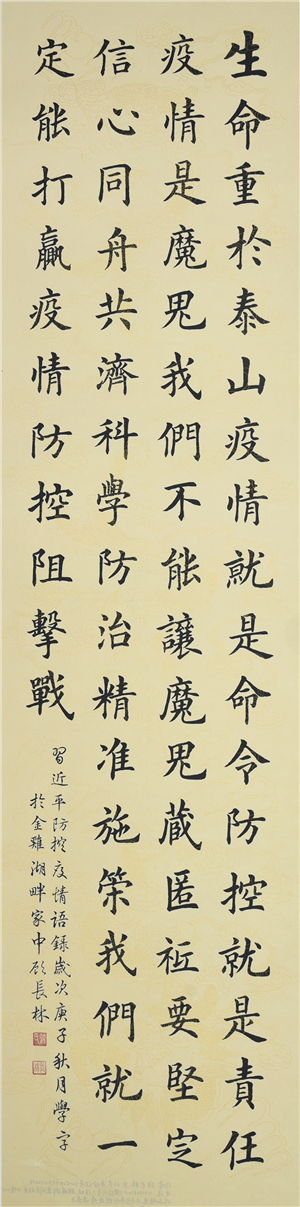 生命重於泰山疫情就是命令防控就是責任
疫情是魔鬼我們不能讓魔鬼藏匿祗要堅定
信心同舟共濟科學防治精准施策我們就一
定能打贏疫情防控阻擊戰
習近平防控疫情语錄歲次庚子秋月學字
於金雞湖畔家中顧長林